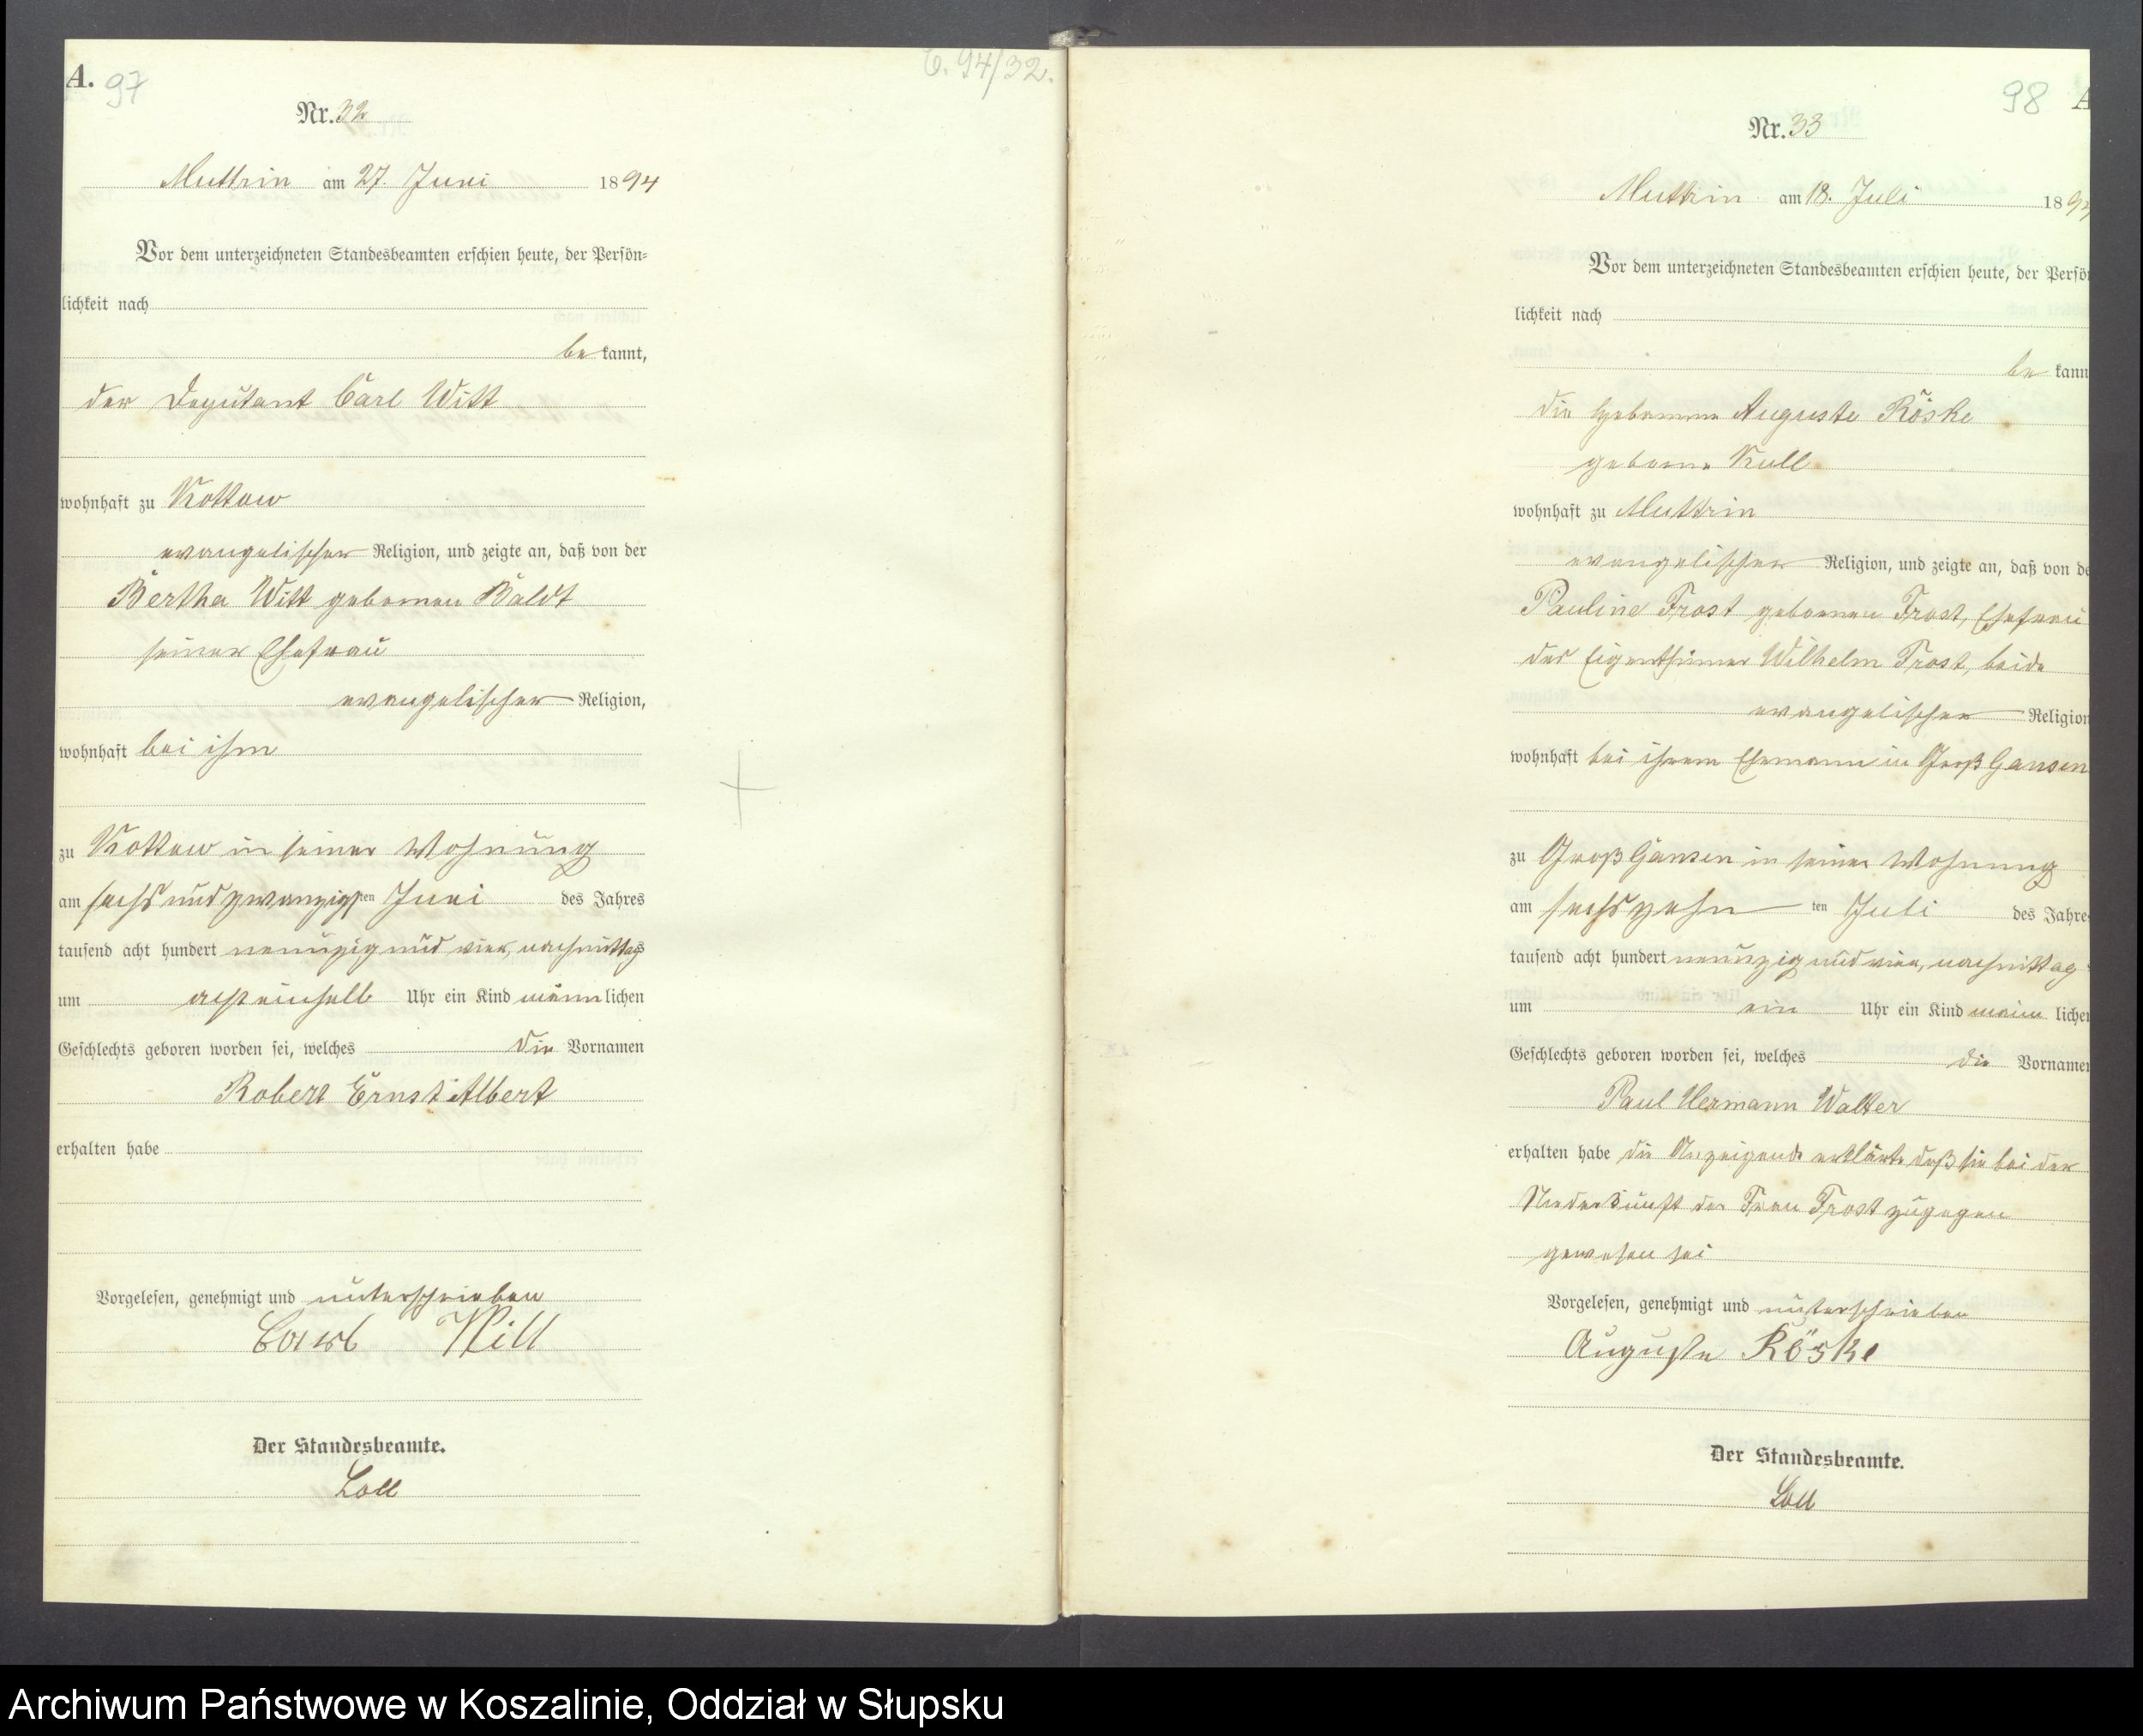 A. 97
C. 94/32.
Nr. 32
Muttrin am 27. Juni 1894
Vor dem unterzeichneten Standesbeamten erschien heute, der Persön-
lichkeit nach
be kannt,
der Deputant Carl Witt
wohnhaft zu Kottow
evangelischer Religion, und zeigte an, daß von der
Bertha Witt gebornen Baldt
seiner Ehefrau
evangelischer Religion,
wohnhaft bei ihm
zu Kottow in seiner Wohnung
am sechs und zwanzigsten Juni des Jahres
tausend acht hundert neunzig und vier, nachmittags
um acht einhalb Uhr ein Kind männlichen
Geschlechts geboren worden sei, welches die Vornamen
Robert Ernst Albert
erhalten habe
Vorgelesen, genehmigt und unterschrieben
Carl Witt
Der Standesbeamte.
Loll
98 A
Nr. 33
Muttrin am 18. Juli 189
Vor dem unterzeichneten Standesbeamten erschien heute, der Persö
lichkeit nach
be kann
die Hebamme Auguste Röske
geborne Kull
wohnhaft zu Muttrin
evangelischer Religion, und zeigte an, daß von de
Pauline Frost gebornen Frost, Ehefrau
des Eigenthümer Wilhelm Frost, beide
evangelischer Religion
wohnhaft bei ihrem Ehemann in Groß Gansen
zu Groß Gansen in seiner Wohnung
am sechszehn ten Juli des Jahre
tausend acht hundert neunzig und vier, nachmittag
um ein Uhr ein Kind männ licher
Geschlechts geboren worden sei, welches die Vorname
Paul Hermann Walter
erhalten habe die Anzeigende erklärte daß sie bei der
Niederkunft der Frau Frost zugegen
gewesen sei
Vorgelesen, genehmigt und unterschrieben
Auguste Röske
Der Standesbeamte.
Loll
Archiwum Państwowe w Koszalinie, Oddział w Słupsku